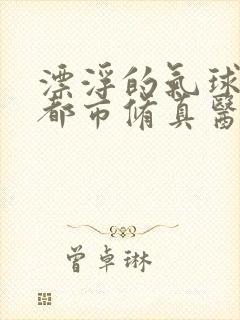 漂浮的氣球
都市脩真醫
曾卓琳